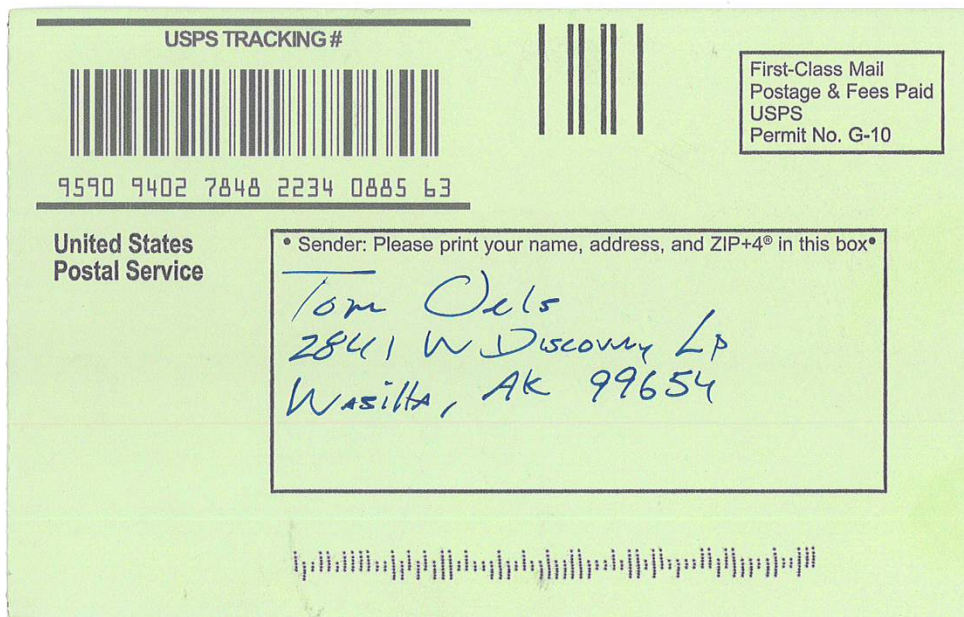 USPS TRACKING #
9590 9402 7848 2234 0885 63
First-Class Mail
Postage & Fees Paid
USPS
Permit No. G-10
United States
Postal Service
• Sender: Please print your name, address, and ZIP+4® in this box•
Tom Oels
2841 W Discovery Lp
Wasilla, AK 99654